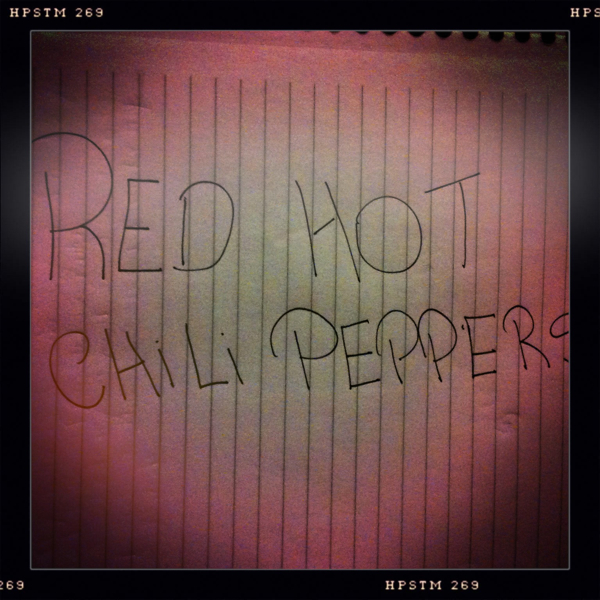 HPSTM 269
HPS
RED HOT
CHiLi PEPPERS
269
HPSTM 269